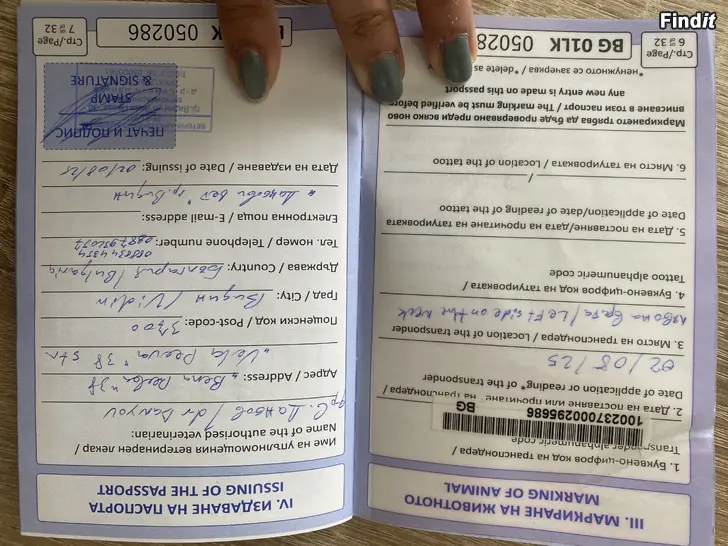 Findit
III. МАРКИРАНЕ НА ЖИВОТНОТО
MARKING OF ANIMAL
1. Буквено-цифров код на транспондера /
Transponder alphanumeric code
100237000295686
BG
2. Дата на поставяне на транспондера /
Date of application or reading* of the transponder
02/08/25
3. Място на транспондера / Location of the transponder
лявона врата / Left side on the neck
4. Буквено-цифров код на татуировката /
Tattoo alphanumeric code
5. Дата на поставяне/дата на прочитане на татуировката
Date of application/date of reading of the tattoo
/
6. Място на татуировката / Location of the tattoo
Маркирането трябва да бъде проверявано преди всяко ново
вписване в този паспорт / The marking must be verified before
any new entry is made on this passport
*ненужното се зачерква / *delete as
Стр./Page
6 от/of 32
BG 01LK 05028
IV. ИЗДАВАНЕ НА ПАСПОРТА
ISSUING OF THE PASSPORT
Име на упълномощения ветеринарен лекар/
Name of the authorised veterinarian:
/ dr
Адрес / Address:
38
38 str.
Пощенски код / Post-code: 3700
Град / City: Видин / Vidin
Държава / Country: България / Bulgaria
Тел. номер / Telephone number:
Електронна поща / E-mail address:
гр. Видин
Дата на издаване / Date of issuing: 02/08/25
ПЕЧАТ И ПОДПИС
STAMP
& SIGNATURE
Стр./Page
7 от/of 32
K 050286